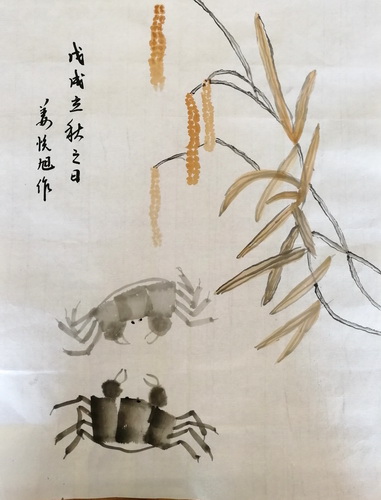 戊戌立秋之日
姜悦旭作